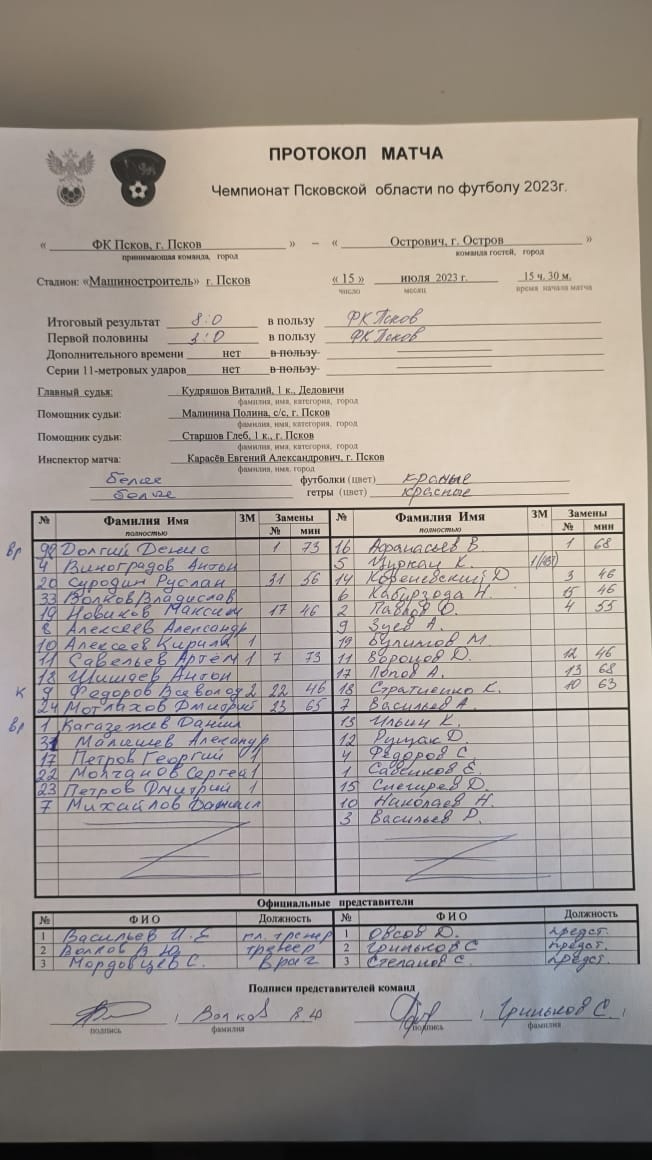 ПРОТОКОЛ МАТЧА
Чемпионат Псковской области по футболу 2023г.
« ФК Псков, г. Псков » – « Острович, г. Остров »
принимающая команда, город команда гостей, город
Стадион: «Машиностроитель» г. Псков « 15 » июля 2023 г. 15 ч. 30 м.
число месяц время начала матча
Итоговый результат 8:0 в пользу ФК Псков
Первой половины 3:0 в пользу ФК Псков
Дополнительного времени нет в пользу
Серии 11-метровых ударов нет в пользу
Главный судья: Кудряшов Виталий, 1 к., Дедовичи
фамилия, имя, категория, город
Помощник судьи: Малинина Полина, с/с, г. Псков
фамилия, имя, категория, город
Помощник судьи: Старшов Глеб, 1 к., г. Псков
фамилия, имя, категория, город
Инспектор матча: Карасёв Евгений Александрович, г. Псков
фамилия, имя, город
белые футболки (цвет) красные
белые гетры (цвет) красные
№ Фамилия Имя ЗМ Замены № Фамилия Имя ЗМ Замены
полностью № мин полностью № мин
вр 98 Долгий Денис 1 73 16 Афанасьев В. 1 68
4 Виноградов Антон 5 К. 1
20 Суродин Руслан 31 56 14 Д 3 46
33 Волков Владислав 6 Н. 15 46
19 Новиков Максим 17 46 2 Павлов О. 4 55
8 Алексеев Александр 9 Зуев А.
10 Алексеев Кирилл 1 19 Булимов М.
11 Савельев Артём 1 7 73 11 Воронов Д. 12 46
18 Шишаев Антон 17 Попов А. 13 68
к 9 Федоров Всеволод 2 22 46 18 Стратиенко К. 10 63
24 Мотлахов Дмитрий 23 65 7 Васильев А.
вр 1 Кагазежев Данил 13 Ильин К.
31 Малышев Александр 12 Рущак Д.
17 Петров Георгий 1 4 Федоров С.
22 Молчанов Сергей 1 1 Савенков Е.
23 Петров Дмитрий 1 15 Снегирев Д.
7 Михайлов 10 Николаев Н.
3 Васильев Р.
Официальные представители
№ Ф И О Должность № Ф И О Должность
1 Васильев И.Е гл. тренер 1 Овсов Д. предст.
2 Волков В.Ю тренер 2 Гриньков С предст.
3 Мордовцев С. врач 3 Степанов С. предст.
Подписи представителей команд
Волков В.Ю Гриньков С.
подпись фамилия подпись фамилия